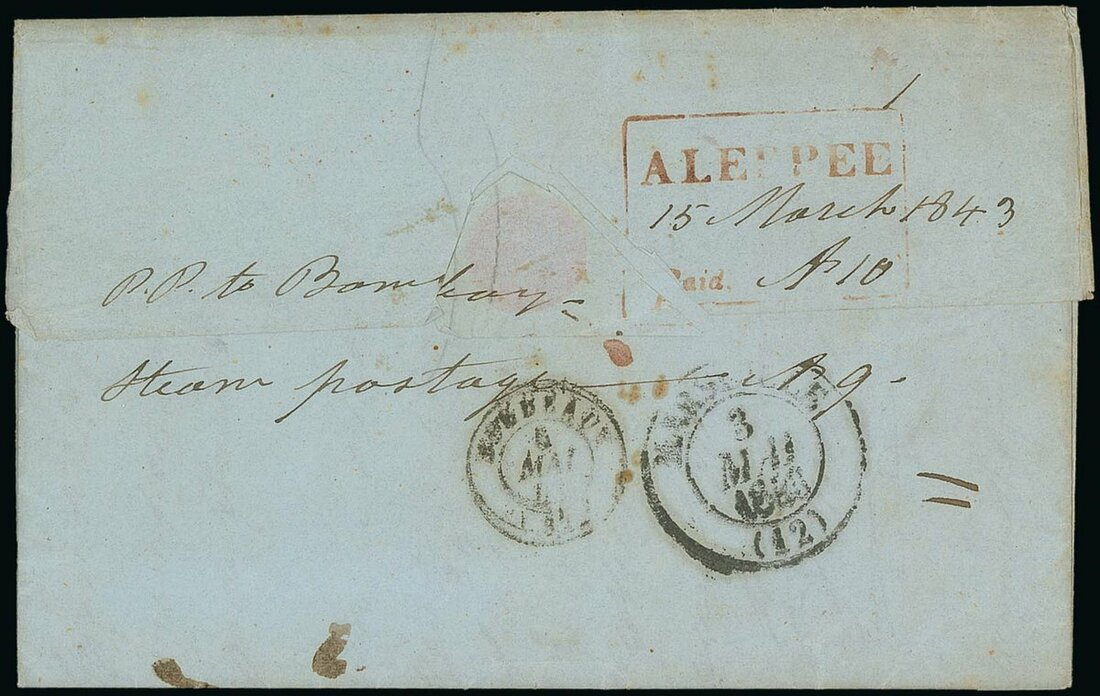 ALEPPEE
15 March 1843
Paid. A 10
P.P. to Bombay
Steam postage A 9
BORDEAUX
MAI
MARSEILLES
3
MAI
1843
(12)